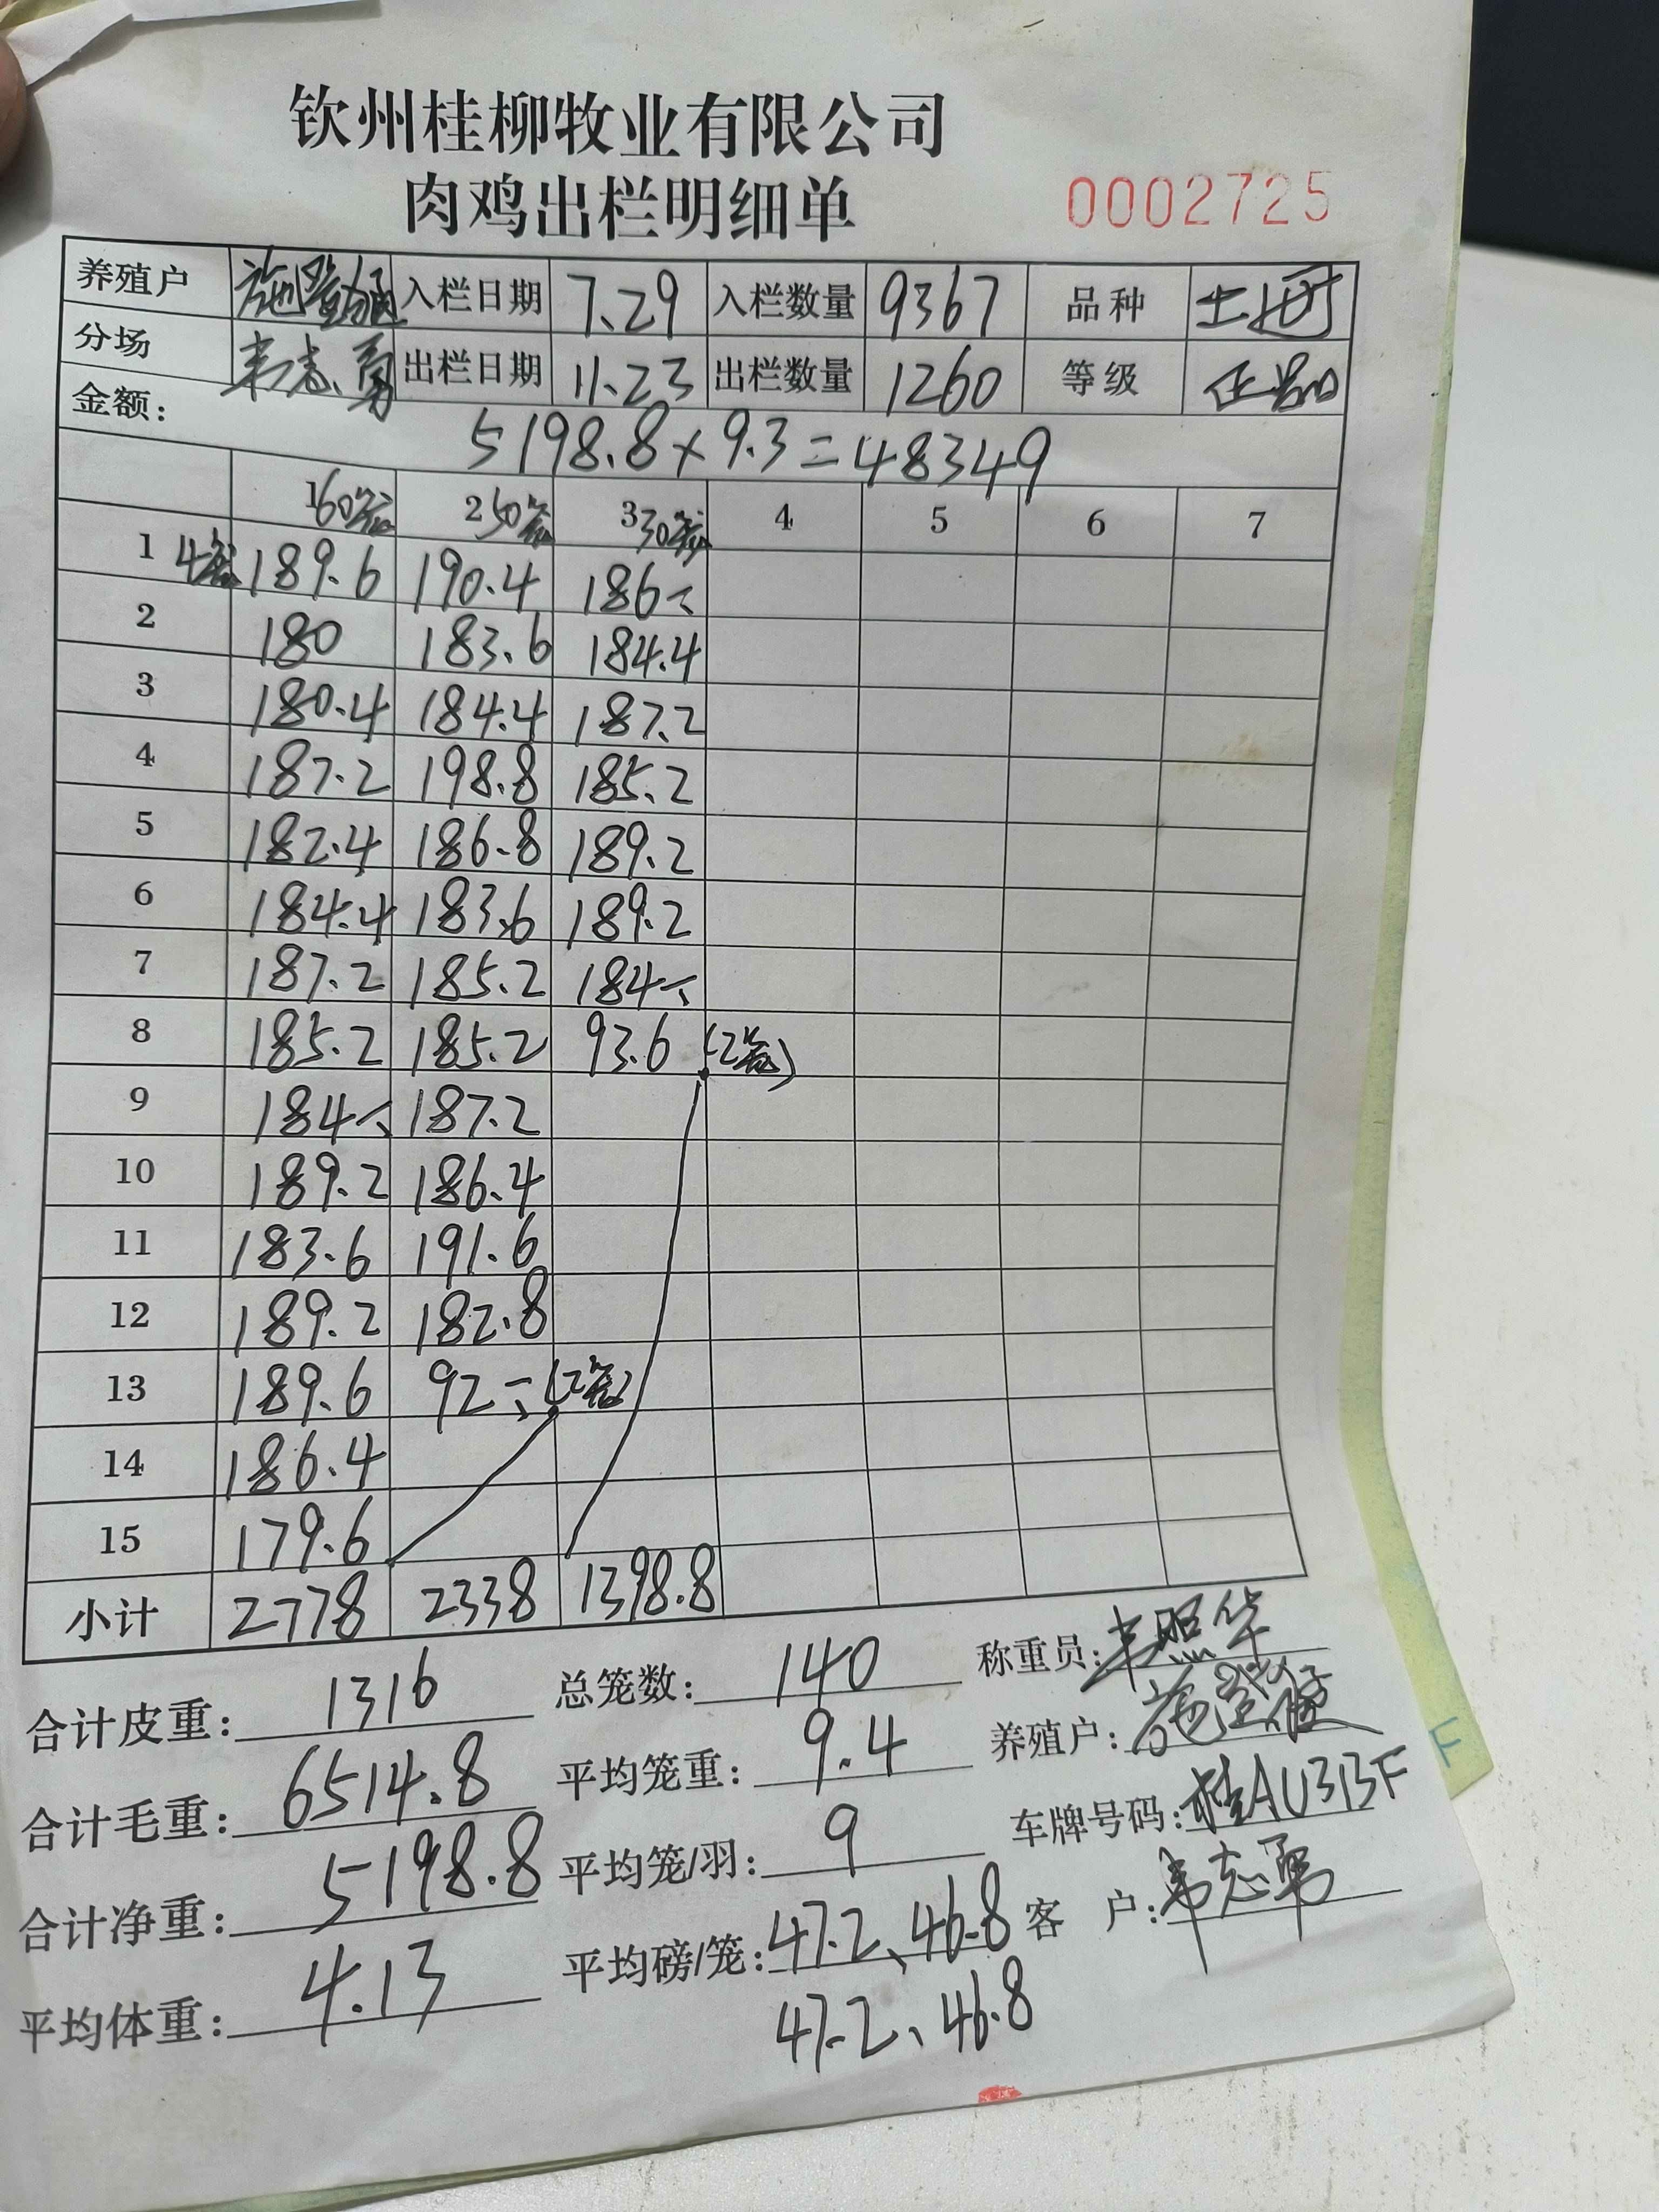 钦州桂柳牧业有限公司
肉鸡出栏明细单 0002725
养殖户 入栏日期 7.29 入栏数量 9367 品种
分场 韦志勇 出栏日期 11.23 出栏数量 1260 等级 正品
金额: 5198.8×9.3=48349
1 60笼 2 50笼 3 30笼 4 5 6 7
1 4笼 189.6 190.4 186
2 180 183.6 184.4
3 180.4 184.4 187.2
4 187.2 198.8 185.2
5 182.4 186.8 189.2
6 184.4 183.6 189.2
7 187.2 185.2 184
8 185.2 185.2 93.6 (2笼)
9 184 187.2
10 189.2 186.4
11 183.6 191.6
12 189.2 182.8
13 189.6 92 (2笼)
14 186.4
15 179.6
小计 2778 2338 1398.8
合计皮重: 1316 总笼数: 140 称重员: 韦照华
合计毛重: 6514.8 平均笼重: 9.4 养殖户:
合计净重: 5198.8 平均笼/羽: 9 车牌号码: 桂AU313F
平均体重: 4.13 平均磅/笼: 47.2、46.8 客 户: 韦志勇
47.2、46.8
F